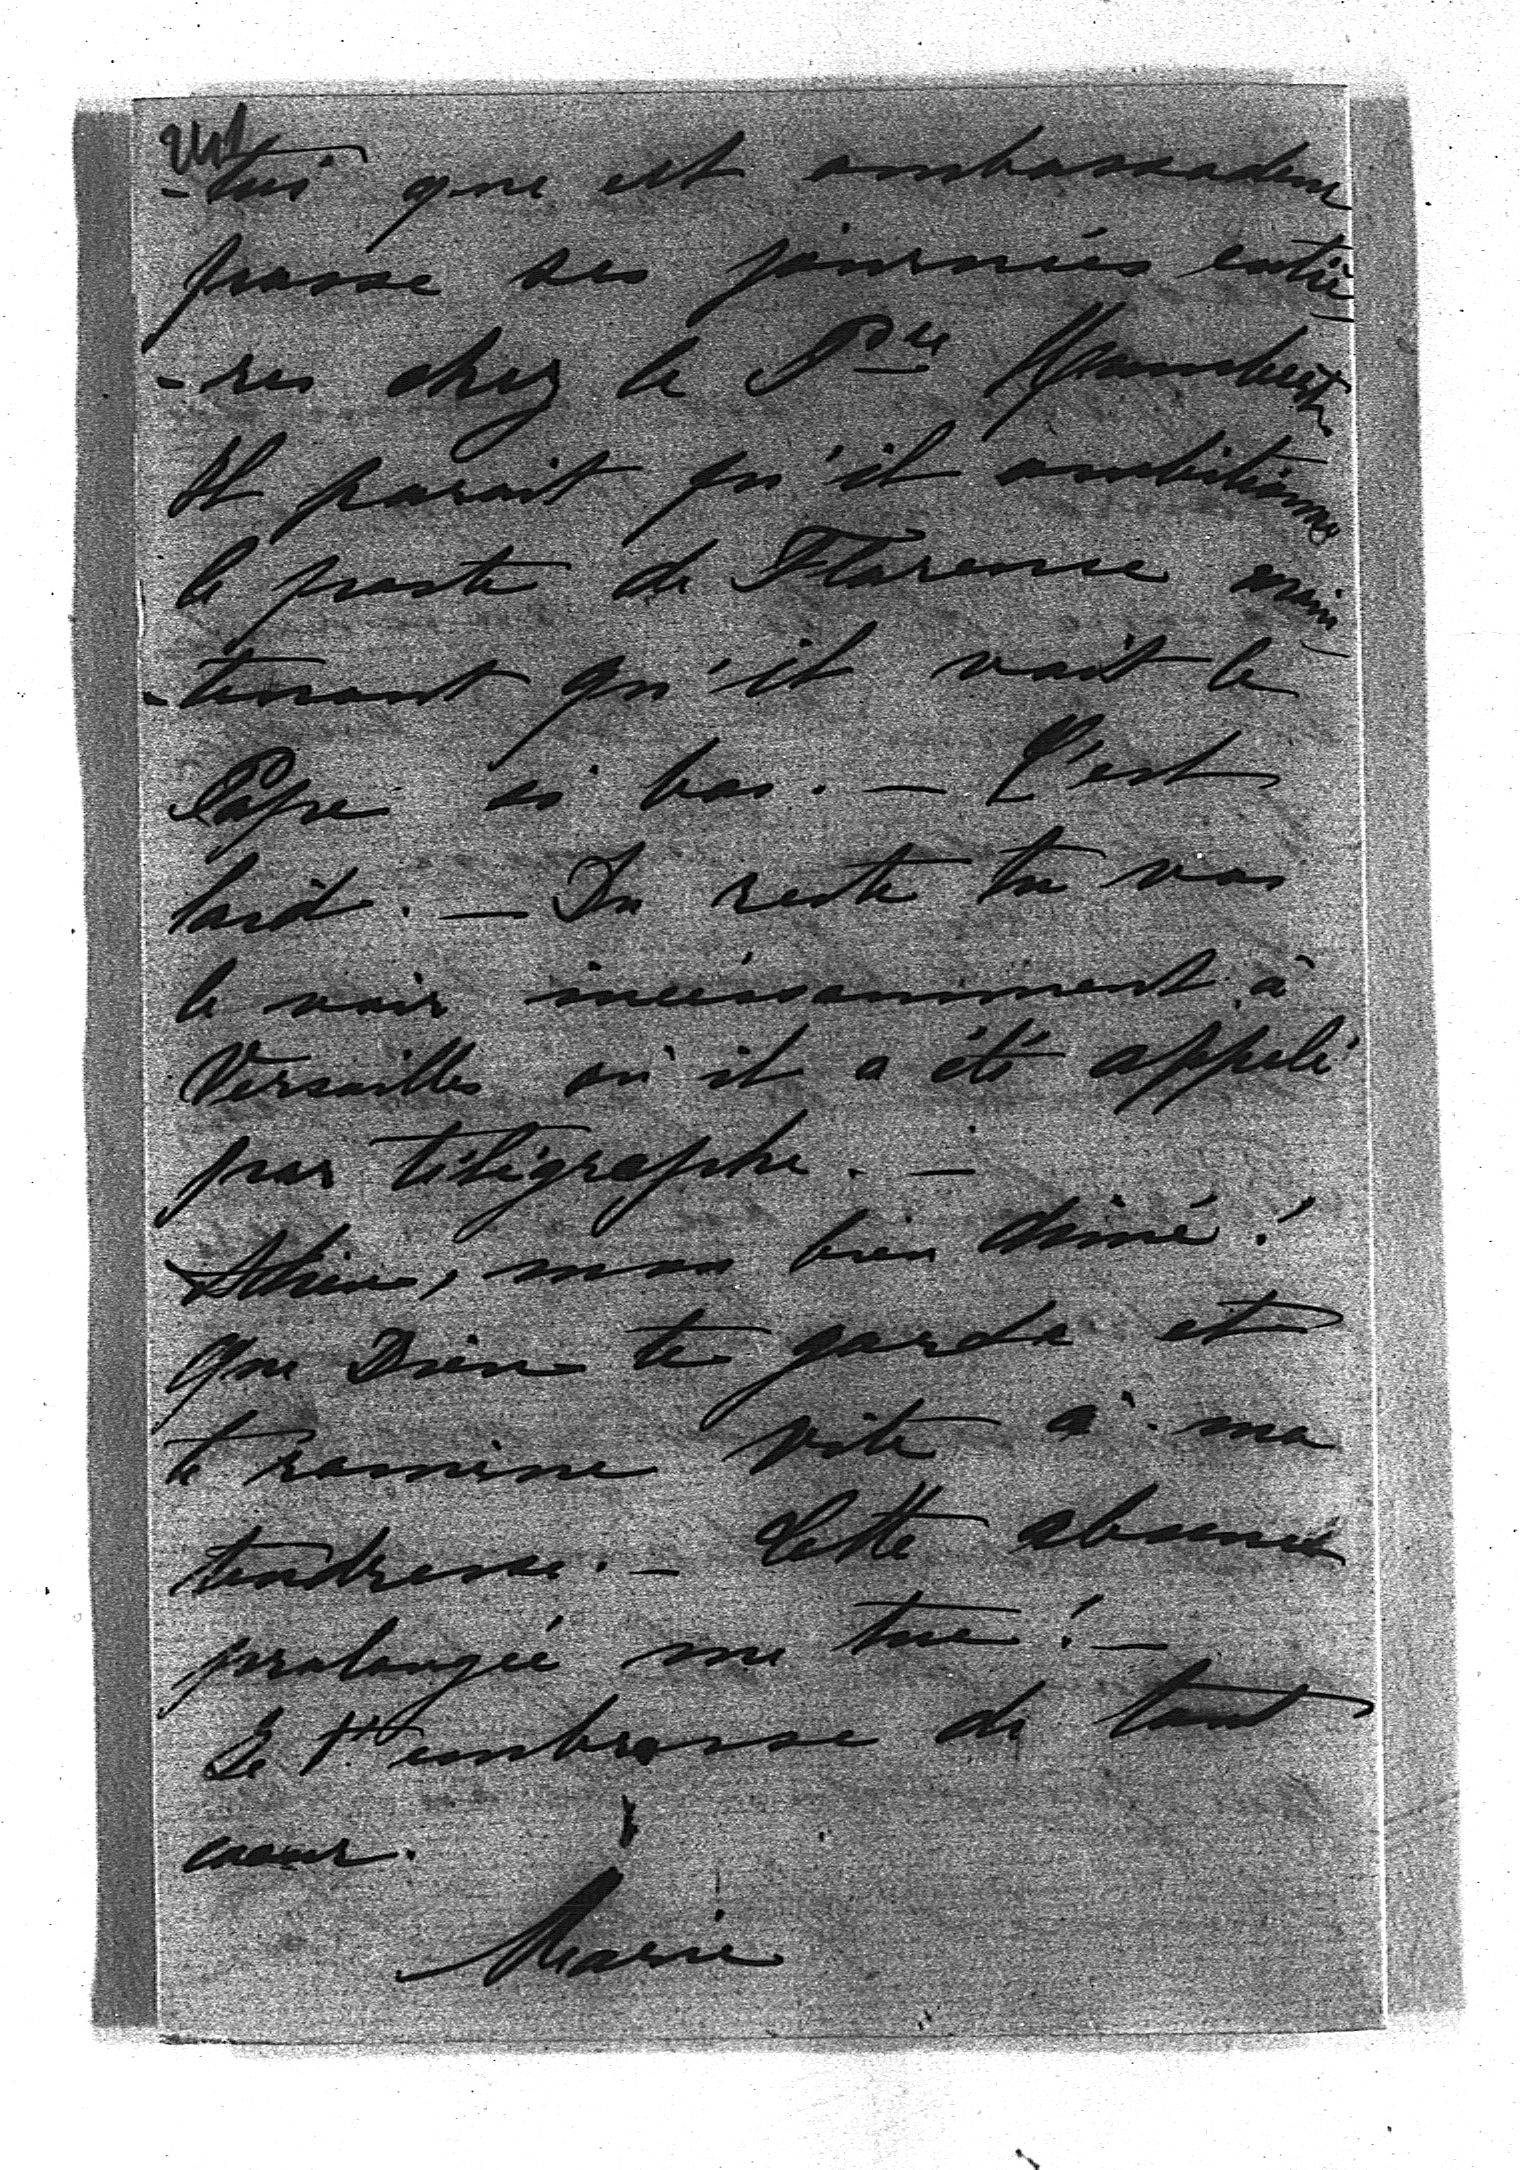 -tui que est ambassadeur
passe ses journées entiè-
-res chez le Pce Humbert.
Il parait qu'il ambitionne
le poste de Florence main-
-tenant qu'il voit le
Pape si bas. — C'est
laid. — Du reste tu vas
le voir incessamment à
Versailles où il a été appelé
par télégraphe. —
Adieu, mon bien aimé!
que Dieu te garde et
te ramène vite à ma
tendresse. — Cette absence
prolongée me tue! —
Je t'embrasse de tout
coeur.
Marie